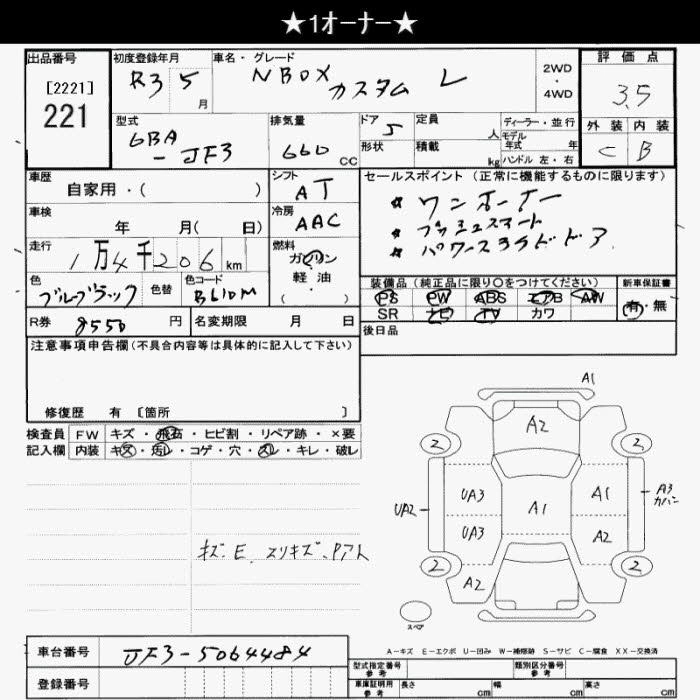 ★1オーナー★
出品番号
[2221]
221
初度登録年月
R3 5 月
車名・グレード
NBOX カスタム L
2WD
・
4WD
評価点
3.5
外装 内装
C B
型式
6BA
- JF3
排気量
660 CC
ドア 5
形状
定員 人
積載 kg
ディーラー・並行
モデル
年式 年
ハンドル 左・右
車歴
自家用・( )
車検
年 月( 日)
走行
1万4千206km
色
ブルーブラック
色替
色コード
B610M
シフト
AT
冷房
AAC
燃料
ガソリン
軽・油
( )
セールスポイント (正常に機能するものに限ります)
★ ワンオーナー
★ プッシュスタート
★ パワースラドドア
装備品 (純正品に限り〇をつけてください)
PS PW ABS エアB AW
SR ナビ TV カワ
新車保証書
有・無
R券 8550 円
名変期限 月 日
後日品
注意事項申告欄(不具合内容等は具体的に記入して下さい)
修復歴 有 〔箇所 〕
検査員
記入欄
FW キズ・飛石・ヒビ割・リペア跡・×要
内装 キズ・汚レ・コゲ・穴・スレ・キレ・破レ
キズ、E、スリキズ、Pアト
A1
A2
2 2
UA3 A1
UA2 A1 A3
カバー
UA3 A2
2 2
A2
スペア
A-キズ E-エクボ U-凹み W-補修跡 S-サビ C-腐食 XX-交換済
車台番号 JF3-5064484
登録番号
型式指定番号
参考
類別区分番号
参考
車庫証明用
参考
長さ cm 幅 cm 高さ cm